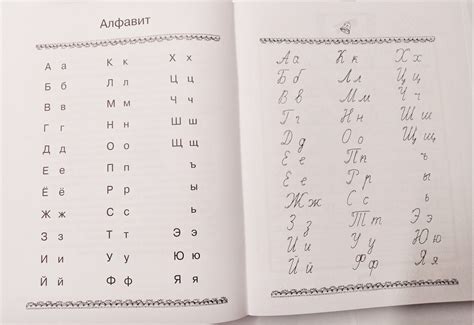 Алфавит
А а К к Х х
Б б Л л Ц ц
В в М м Ч ч
Г г Н н Ш ш
Д д О о Щ щ
Е е П п ъ
Ё ё Р р ы
Ж ж С с ь
З з Т т Э э
И и У у Ю ю
Й й Ф ф Я я
А а К к Х х
Б б Л л Ц ц
В в М м Ч ч
Г г Н н Ш ш
Д д О о Щ щ
Е е П п ъ
Е е Р р ы
Ж ж С с ь
З з Т т Э э
И и У у Ю ю
Й й Ф ф Я я